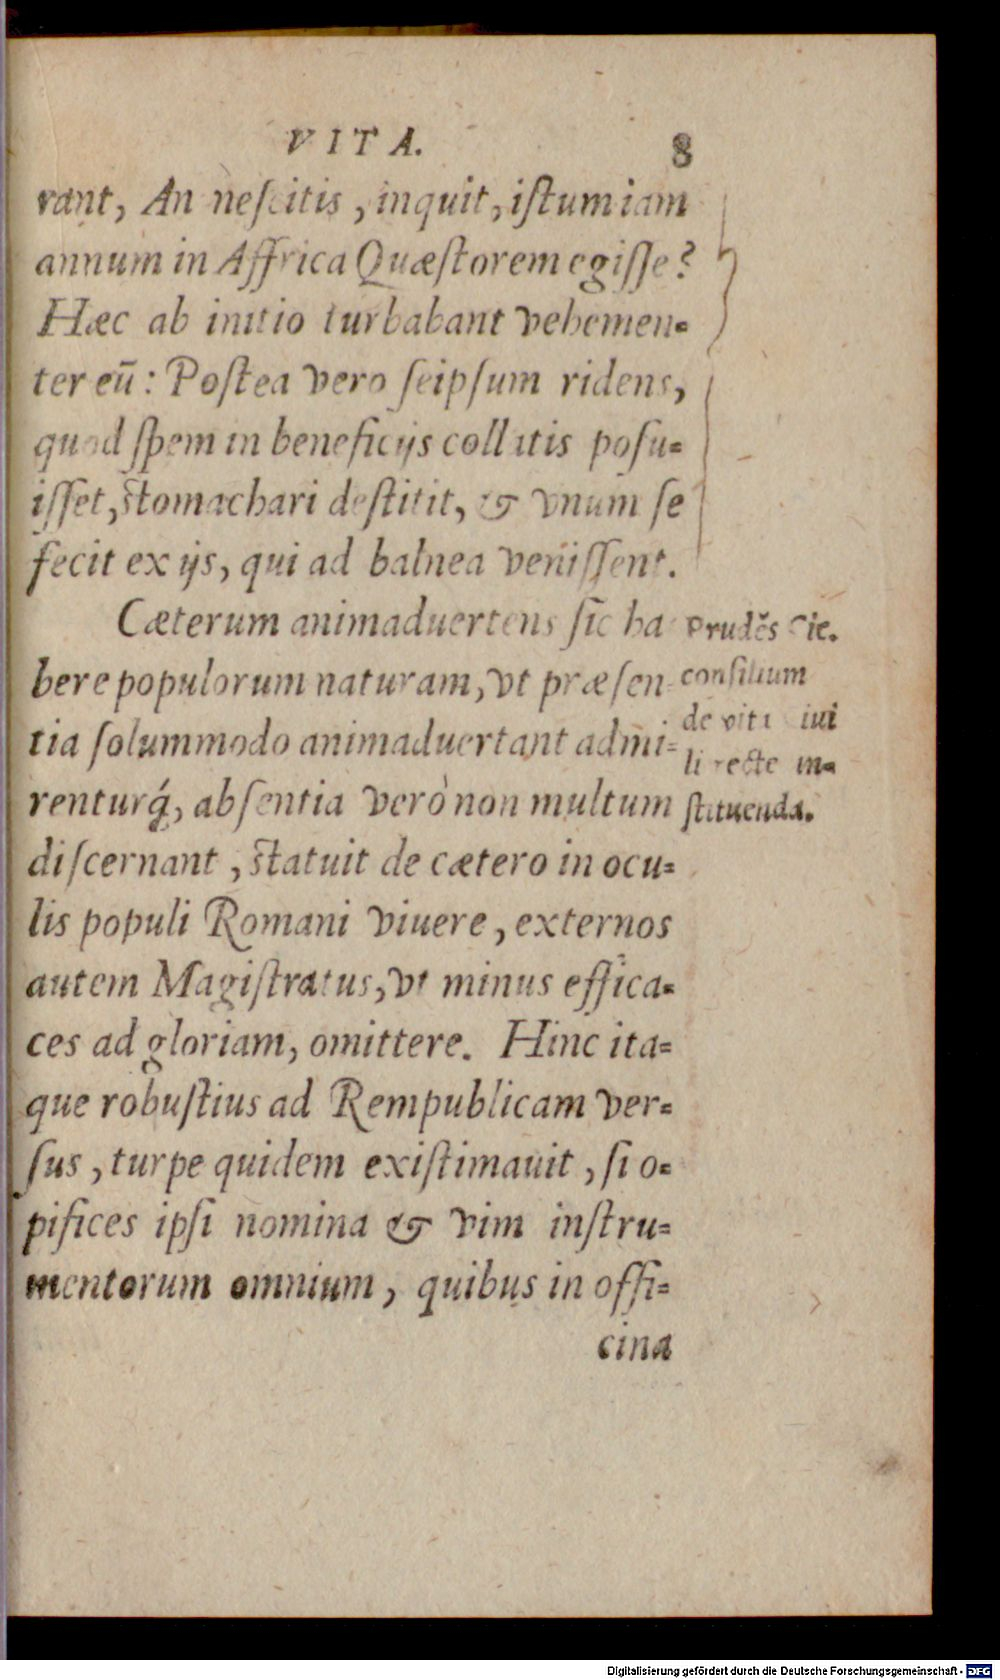 VITA. 8
rant, An neſcitis, inquit, iſtum iam
annum in Affrica Quæſtorem egiſſe?
Hæc ab initio turbabant vehemen-
ter eū: Poſtea vero ſeipſum ridens,
quod ſpem in beneficijs collatis poſu-
iſſet, ſtomachari deſtitit, & vnum ſe
fecit ex ijs, qui ad balnea veniſſent.
Cæterum animaduertens ſic ha
bere populorum naturam, vt præſen-
tia ſolummodo animaduertant admi-
renturq́, abſentia verò non multum
diſcernant, ſtatuit de cætero in ocu-
lis populi Romani viuere, externos
autem Magiſtratus, vt minus effica-
ces ad gloriam, omittere. Hinc ita-
que robuſtius ad Rempublicam ver-
ſus, turpe quidem existimauit, ſi o-
pifices ipſi nomina & vim inſtru-
mentorum omnium, quibus in offi-
cina
Prudēs Cic.
conſilium
de vita
recte in-
ſtituenda.
Digitalisierung gefördert durch die Deutsche Forschungsgemeinschaft - DFG